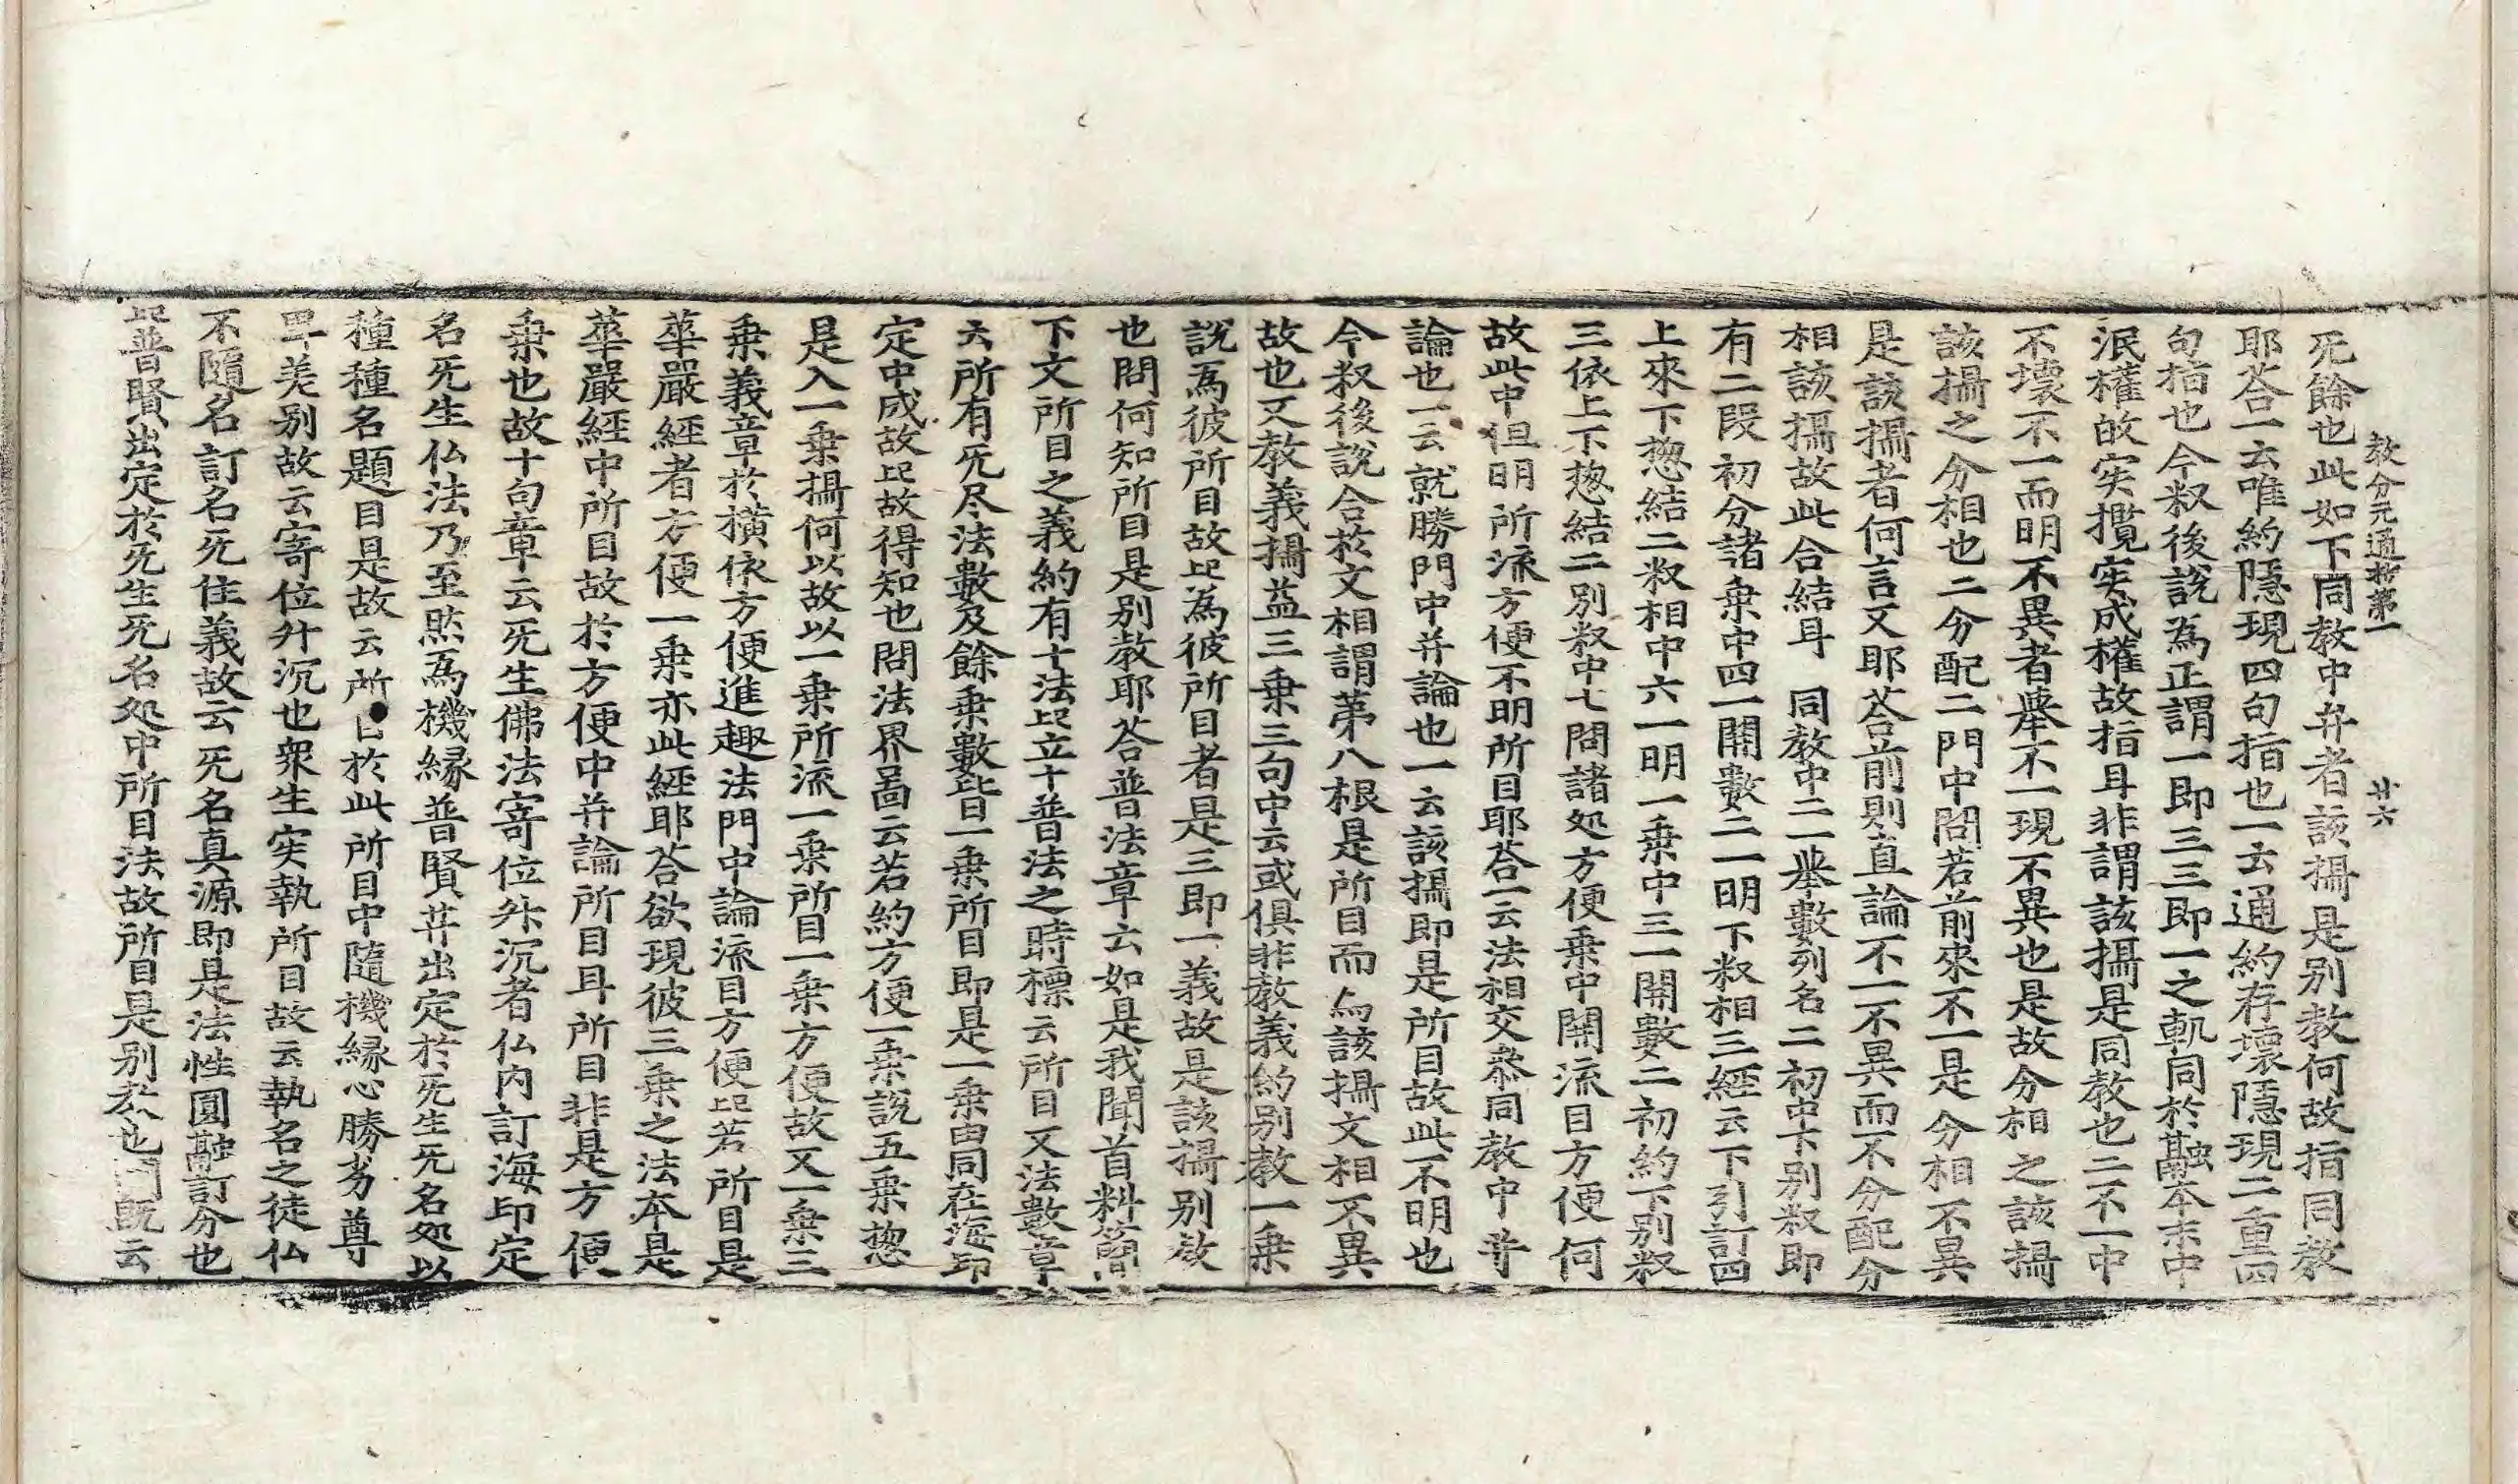 教分元通抄第一 廿六
旡餘也此如下同教中并者該攝是別教何故指同教
耶荅一云唯約隱現四句指也一云通約存壞隱現二重四
句指也今釈後說為正謂一即三三即一之軌同於融本末中
泯權故実攬実成權故指耳非謂該攝是同教也二不一中
不壞不一而明不異者擧不一現不異也是故分相之該攝
該攝之分相也二分配二門中問若前來不一是分相不異
是該攝者何言又耶荅前則直論不一不異而不分配分
相該攝故此合結耳 同教中二一擧數列名二初中下別釈即
有二段初分諸乗中四一開數二一明下釈相三經云下引訂四
上來下惣結二釈相中六一明一乗中三一開數二初約下別釈
三依上下惣結二別釈中七問諸処方便乗中開流目方便何
故此中但明所流方便不明所目耶荅一云法相交叅同教中普
論也一云就勝門中并論也一云該攝即是所目故此不明也
今釈後說合於文相謂第八根是所目而与該攝文相不異
故也又教義攝益三乗三句中云或俱非教義約別教一乗
說為彼所目故㠯為彼所目者是三即一義故是該攝別教
也問何知所目是別教耶荅普法章云如是我聞首料簡
下文所目之義約有十法㠯立十普法之時標云所目又法數章
云所有旡尽法數及餘乗數皆一乗所目即是一乗由同在海印
定中成故㠯故得知也問法界啚云若約方便一乗說五乗惣
是入一乗攝何以故以一乗所流一乗所目一乗方便故又一乗三
乗義章於橫依方便進趣法門中論流目方便㠯若所目是
華嚴經者方便一乗亦此經耶荅欲現彼三乗之法本是
華嚴經中所目故於方便中并論所目耳所目非是方便
乗也故十句章云旡生佛法寄位升沉者仏內訂海印定
名旡生仏法乃至㷼為機緣普賢𦬇出定於旡生旡名処以
種種名題目是故云所目於此所目中隨機緣心勝劣尊
卑差別故云寄位升沉也衆生実執所目故云執名之徒仏
不隨名訂名旡住義故云旡名真源即是法性圓融訂分也
㠯普賢出定於旡生旡名処中所目法故所目是別教也問旣云